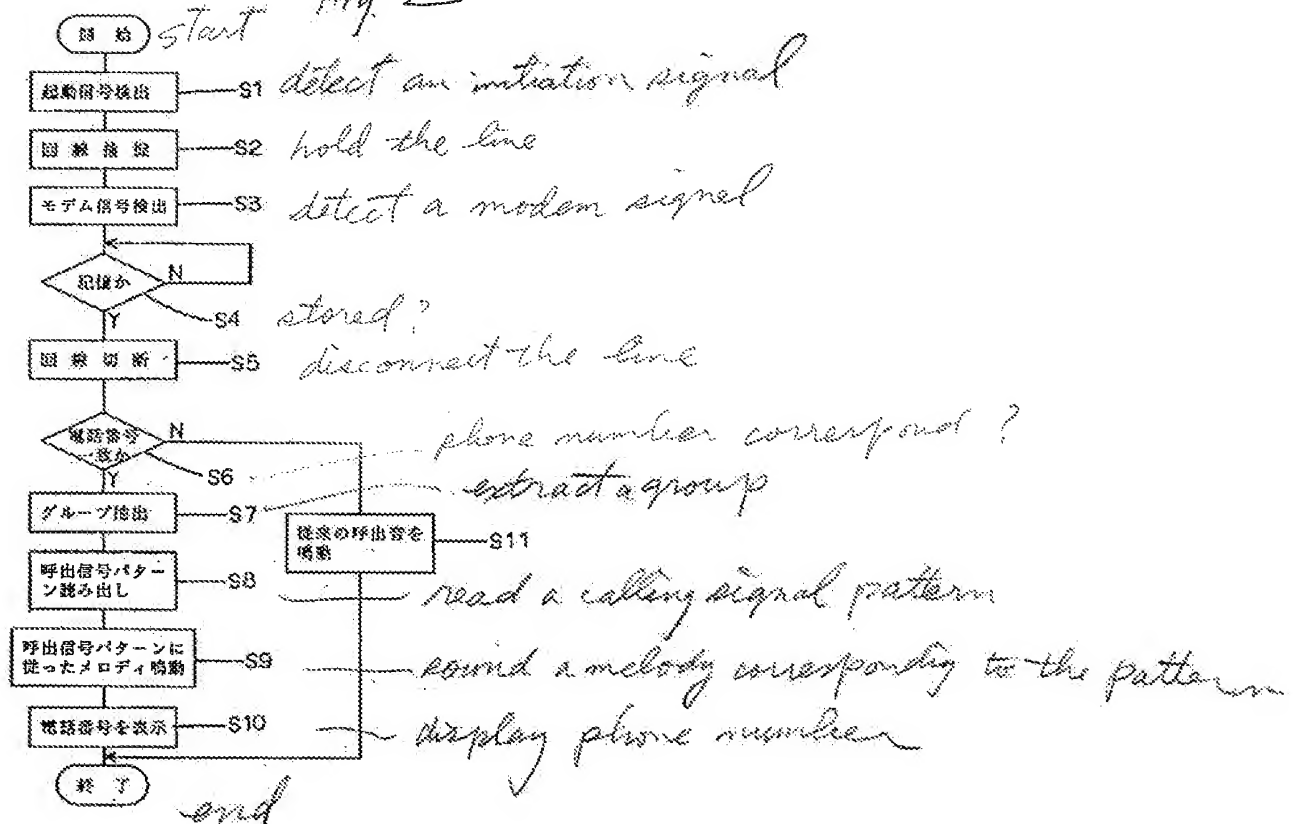 開始 start
起動信号検出 S1 detect an initiation signal
回線接続 S2 hold the line
モデム信号検出 S3 detect a modem signal
記憶か N
Y S4 stored?
回線切断 S5 disconnect the line
電話番号 N phone number correspond?
一致か
Y S6
グループ抽出 S7 extract a group
従来の呼出音を
鳴動 S11
呼出信号パター
ン読み出し S8 read a calling signal pattern
呼出信号パターンに
従ったメロディ鳴動 S9 sound a melody correspondig to the pattern
電話番号を表示 S10 display phone number
終了 end